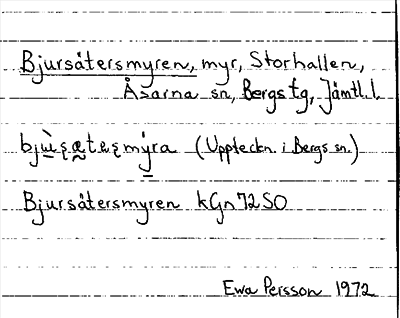 Bjursätersmyren, myr, Storhallen,
Åsarna sn, Bergs tg, Jämtl. l.
(Uppteckn. i Bergs sn.)
Bjursätersmyren kGn72SO
Ewa Persson 1972